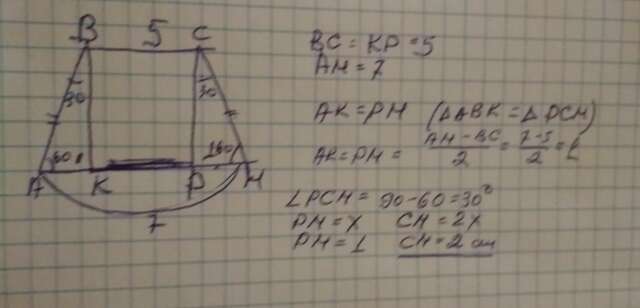 B 5 C
30
30
60
160
A K P H
7
BC = KP = 5
AH = 7
AK = PH (ΔABK = ΔPCH)
AK = PH = \frac{AH - BC}{2} = \frac{7-5}{2} = 1
∠PCH = 90 - 60 = 30°
PH = x CH = 2x
PH = 1 CH = 2 см